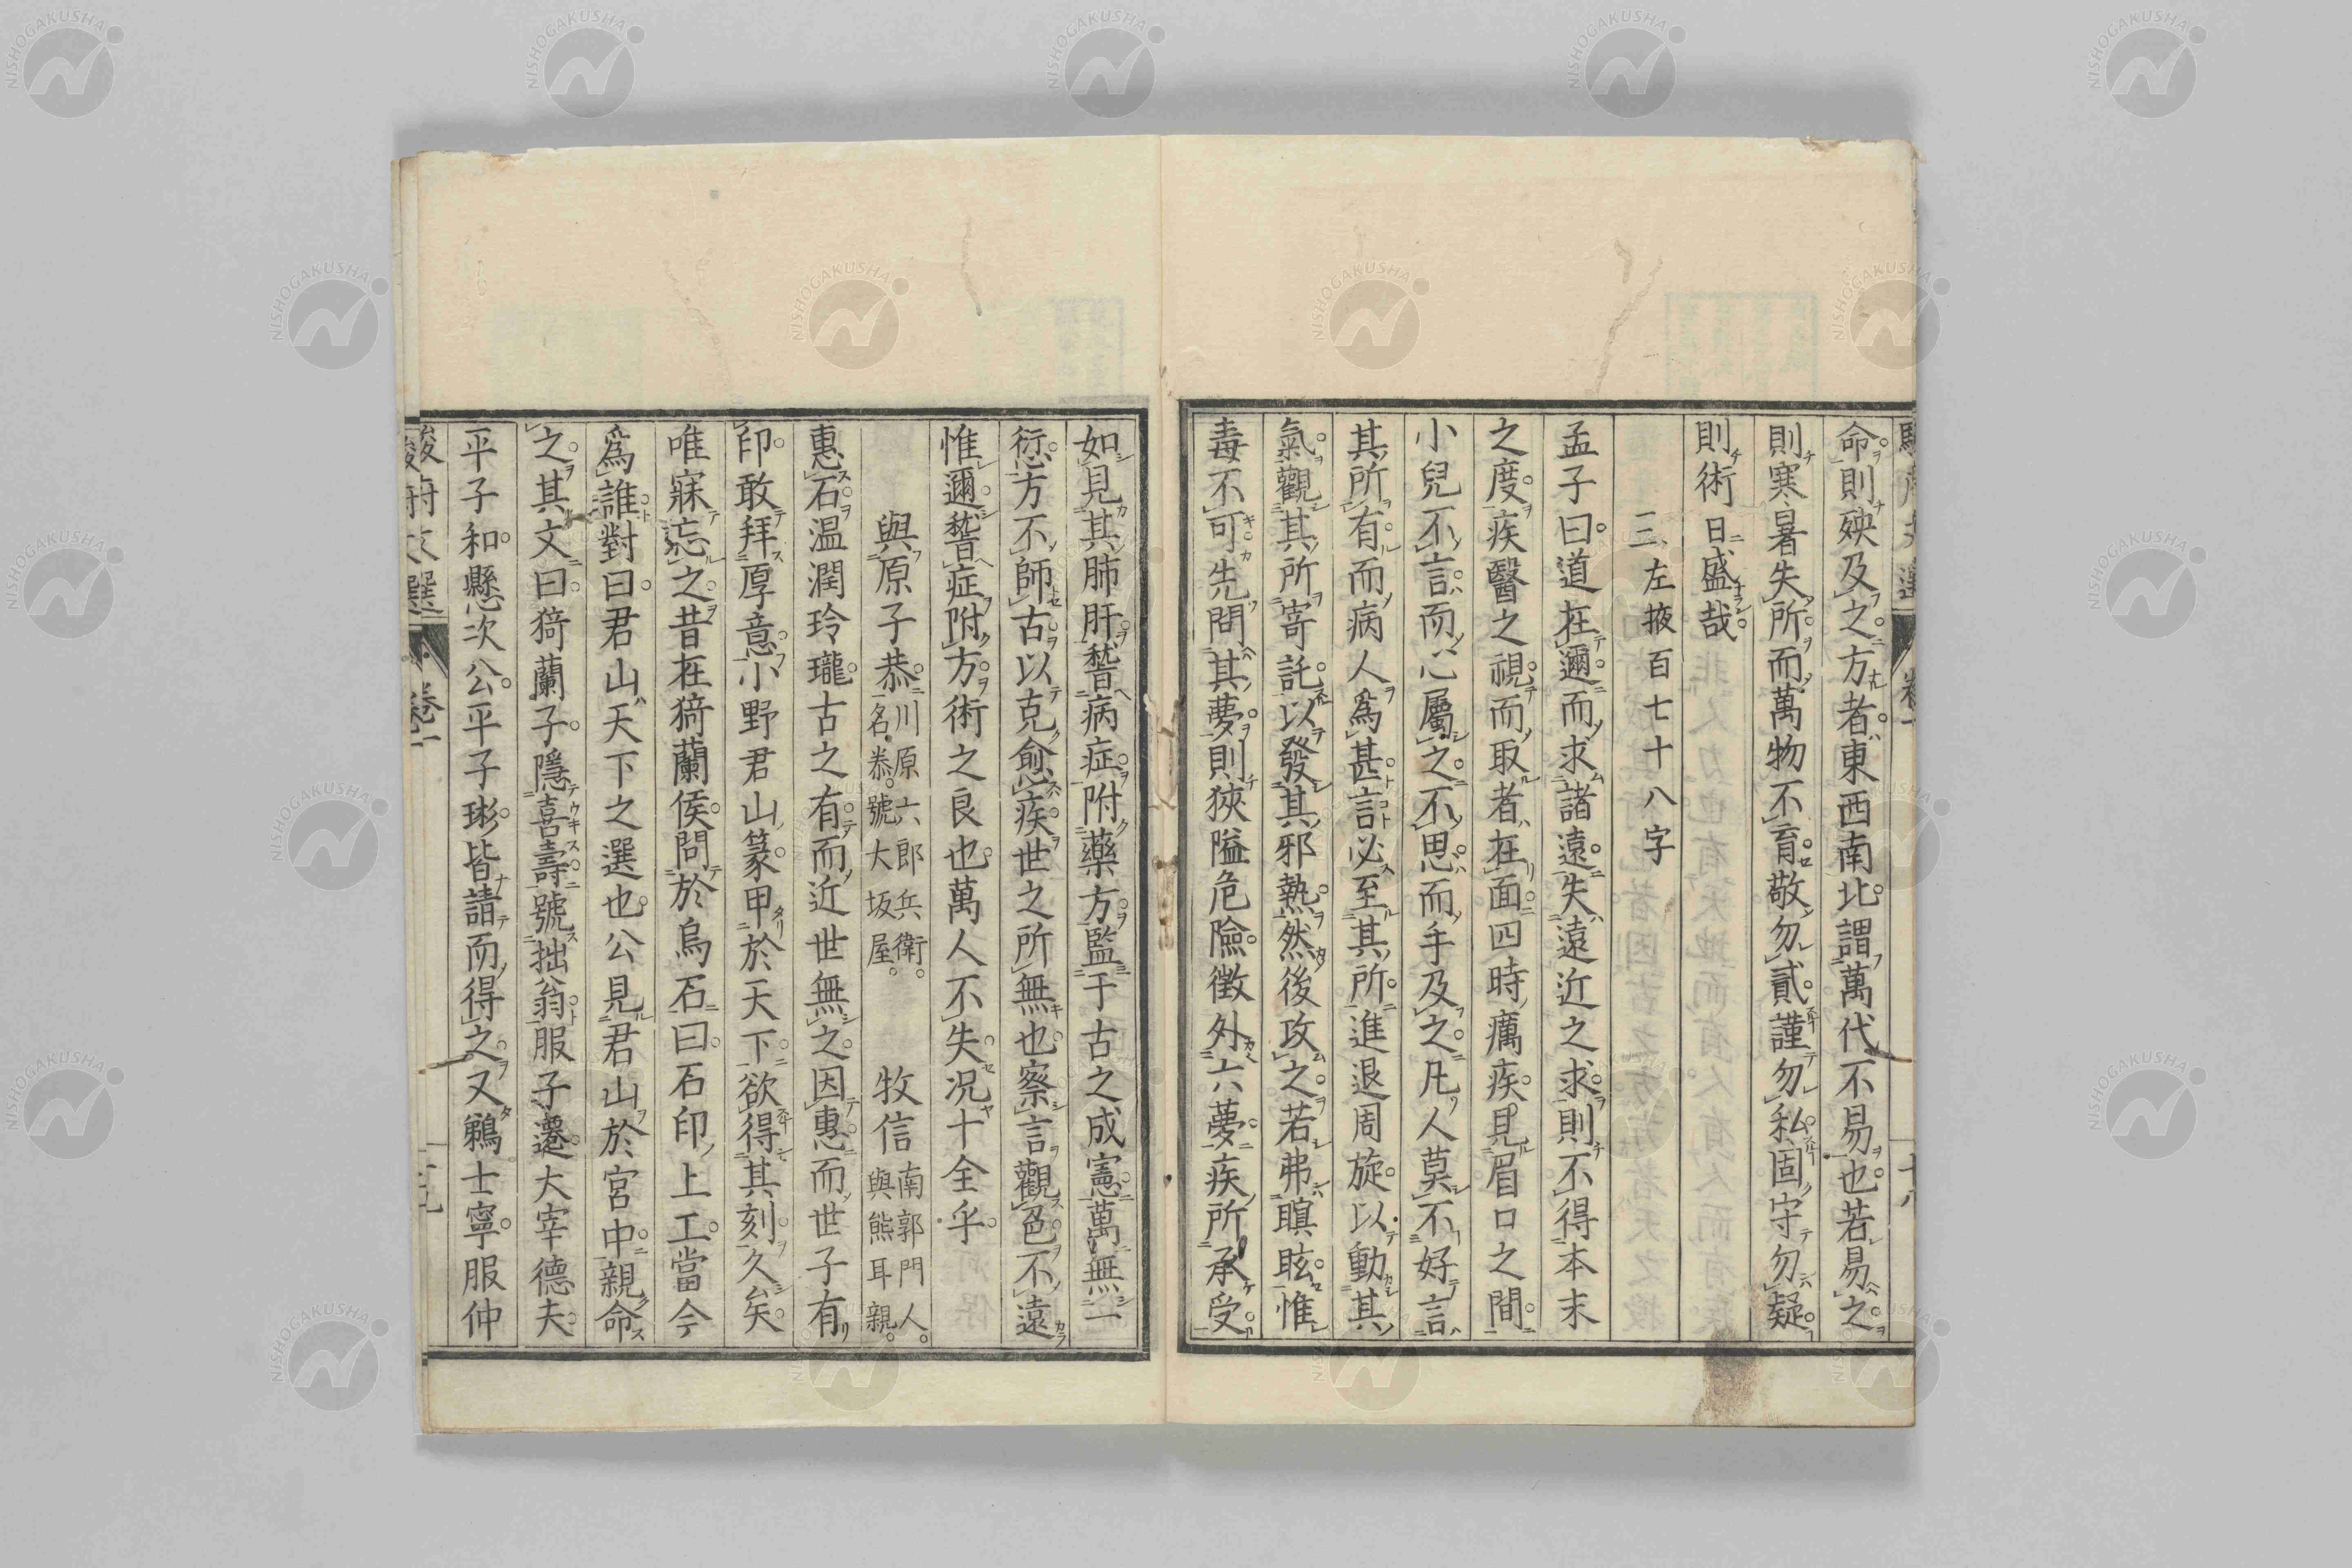 命則殃及之方者東西南北謂萬代不易也若易之
則寒暑失所而萬物不育敬勿貳謹勿私固守勿疑
則術日盛哉
三、左掖百七十八字
孟子曰道在邇而求諸遠失遠近之求則不得本末
之度疾醫之視而取者在面四時癘疾見眉口之間
小兒不言而心屬之不思而手及之凡人莫不好言
其所有而病人爲甚言必至其所進退周旋以動其
氣觀其所寄託以發其邪熱然後攻之若弗瞑眩惟
毒不可先問其夢則狹隘危險徵外六夢疾所承受
如見其肺肝、病症附藥方監于古之成憲萬無一
愆方不師古以克愈疾世之所無也察言觀色不遠
惟邇、症附方術之良也萬人不失况十全乎
與原子恭 川原六郎兵衛。名恭。號大坂屋。 牧信 南郭門人。與熊耳親。
惠石温潤玲瓏古之有而近世無之因惠而世子有
印敢拜厚意小野君山篆甲於天下欲得其刻久矣
唯寐忘之昔在猗蘭侯問於烏石曰石印上工當今
爲誰對曰君山天下之選也公見君山於宮中親命
之其文曰猗蘭子隱喜壽號拙翁服子遷大宰德夫
平子和懸次公平子彬皆請而得之又鵜士寧服仲
駿府文選 卷一